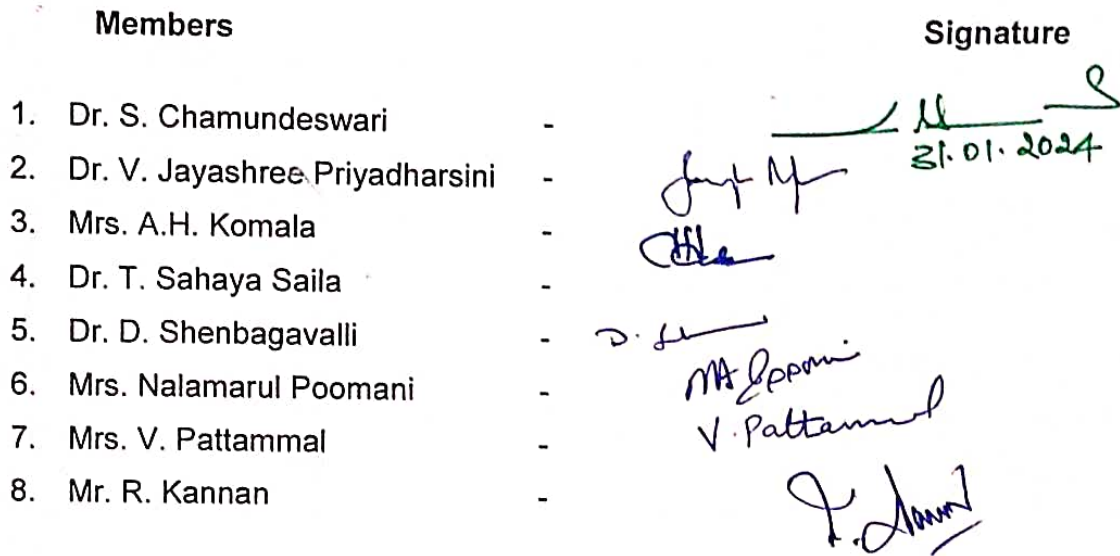 Members Signature
1. Dr. S. Chamundeswari -
31.01.2024
2. Dr. V. Jayashree Priyadharsini -
3. Mrs. A.H. Komala -
4. Dr. T. Sahaya Saila -
5. Dr. D. Shenbagavalli - D.
6. Mrs. Nalamarul Poomani -
7. Mrs. V. Pattammal - V. Pattammal
8. Mr. R. Kannan -